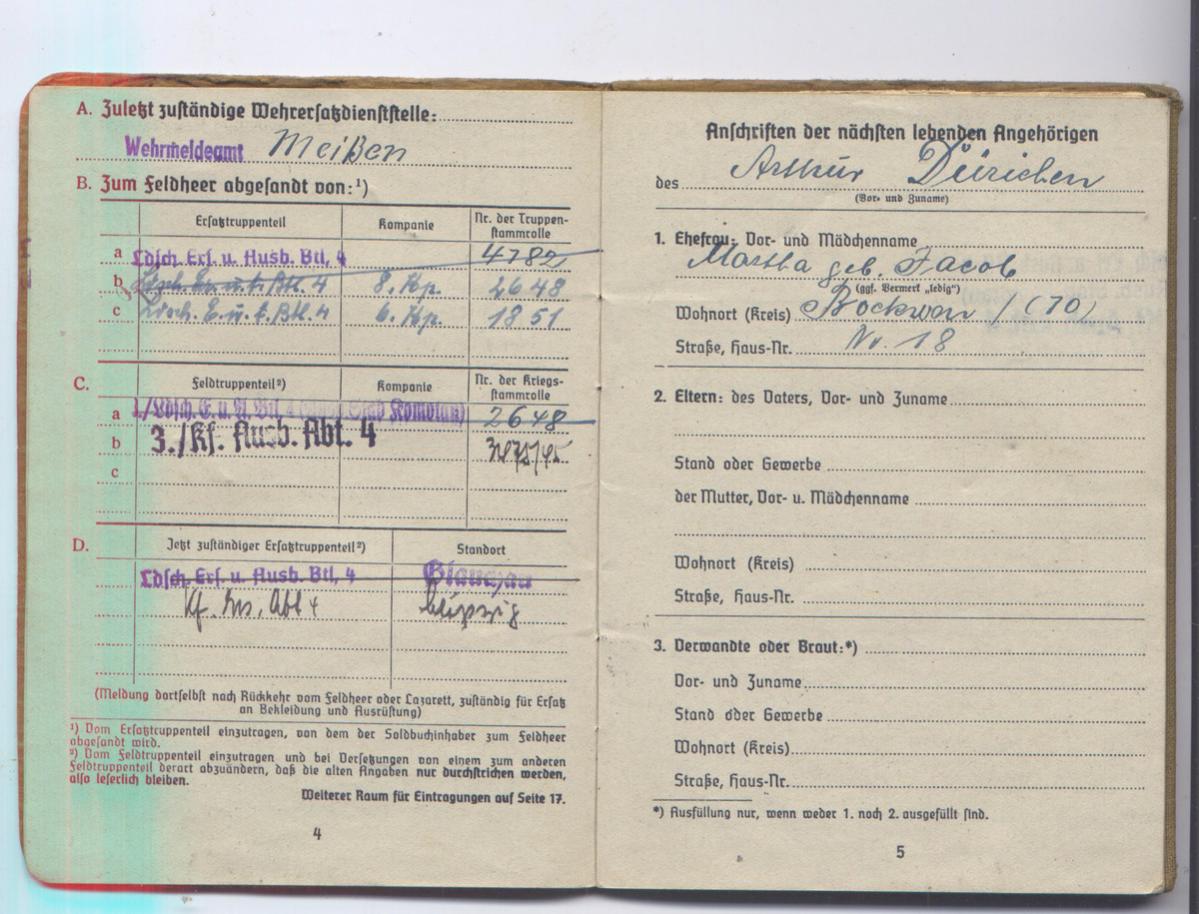 A. Zuletzt zuständige Wehrersatzdienststelle:
Wehrmeldeamt Meißen
B. Zum Feldheer abgesandt von:¹)
Ersatztruppenteil Kompanie Nr. der Truppen-
stammrolle
a Ldsch. Ers. u. Ausb. Btl. 4 4782
b Ldsch. E. u. A. Btl. 4 8. Kp. 2648
c Ldsch. E. u. A. Btl. 4 6. Kp. 1851
C. Feldtruppenteil²) Kompanie Nr. der Kriegs-
stammrolle
a /Ldsch. E. u. A. Btl. 4 2648
b 3./Kf. Ausb. Abt. 4
c
D. Jetzt zuständiger Ersatztruppenteil²) Standort
Ldsch. Ers. u. Ausb. Btl. 4 Glauchau
Kf. Abt 4 Leipzig
(Meldung dortselbst nach Rückkehr vom Feldheer oder Lazarett, zuständig für Ersatz
an Bekleidung und Ausrüstung)
¹) Vom Ersatztruppenteil einzutragen, von dem der Soldbuchinhaber zum Feldheer
abgesandt wird.
²) Vom Feldtruppenteil einzutragen und bei Versetzungen von einem zum anderen
Feldtruppenteil derart abzuändern, daß die alten Angaben nur durchstrichen werden,
also leserlich bleiben.
Weiterer Raum für Eintragungen auf Seite 17.
4
Anschriften der nächsten lebenden Angehörigen
des Arthur Dürichen
(Vor- und Zuname)
1. Ehefrau: Vor- und Mädchenname
Martha geb. Jacob
(ggf. Vermerk „ledig“)
Wohnort (Kreis) Bockwen / (10)
Straße, Haus-Nr. Nr. 18
2. Eltern: des Vaters, Vor- und Zuname
Stand oder Gewerbe
der Mutter, Vor- u. Mädchenname
Wohnort (Kreis)
Straße, Haus-Nr.
3. Verwandte oder Braut:*)
Vor- und Zuname
Stand oder Gewerbe
Wohnort (Kreis)
Straße, Haus-Nr.
*) Ausfüllung nur, wenn weder 1. noch 2. ausgefüllt sind.
5